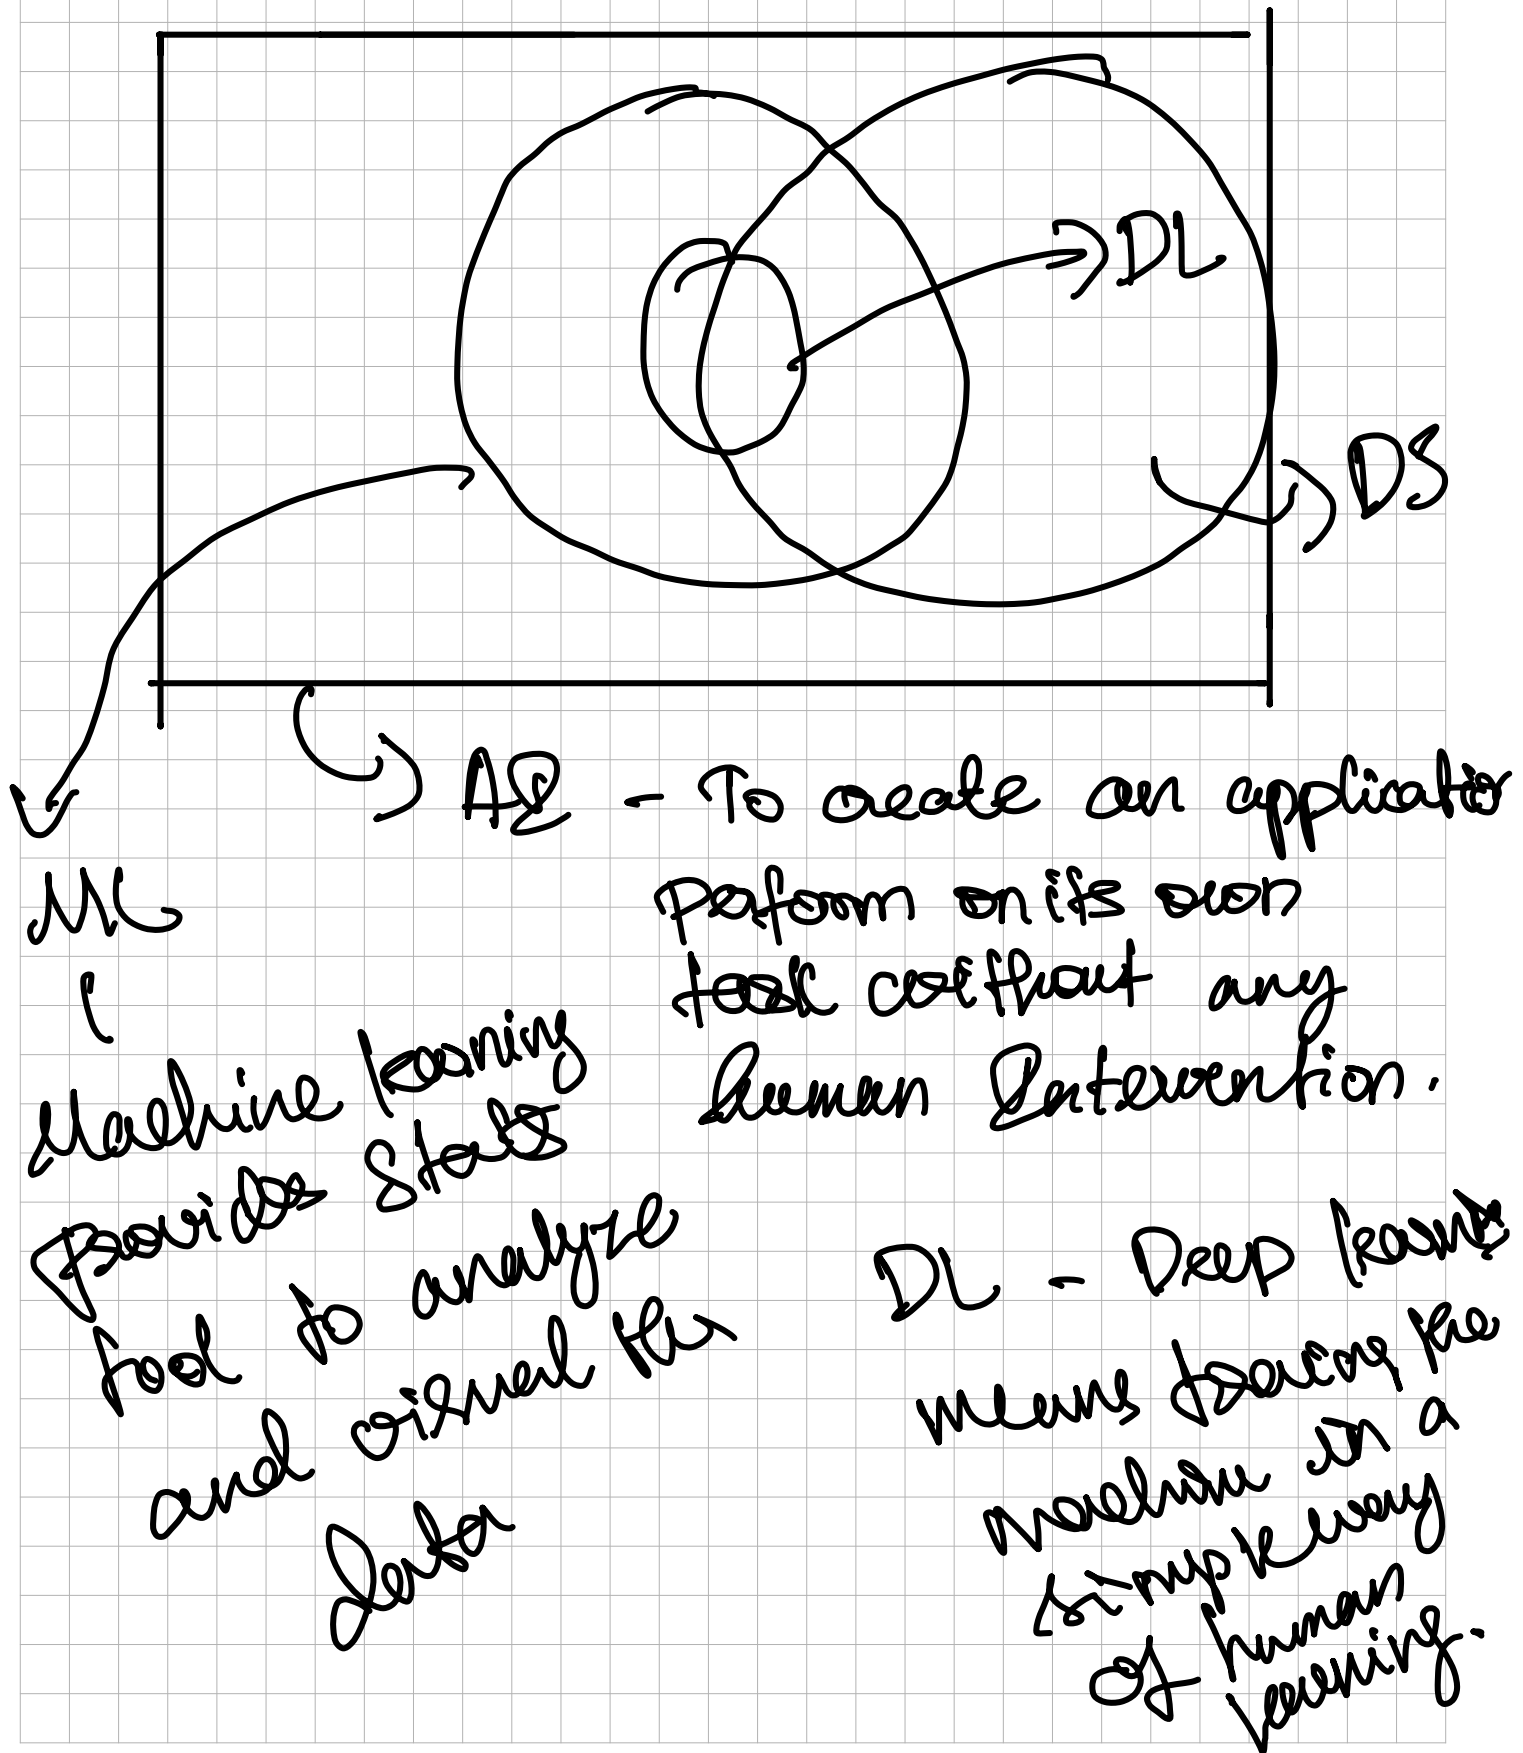 DL
DS
AI - To create an application
perform on its own
task without any
human Intervention.
ML
Machine learning
provides stats
tool to analyze
and visual the
data
DL - Deep learning
means tracing the
machine in a
simple way
of human
learning.